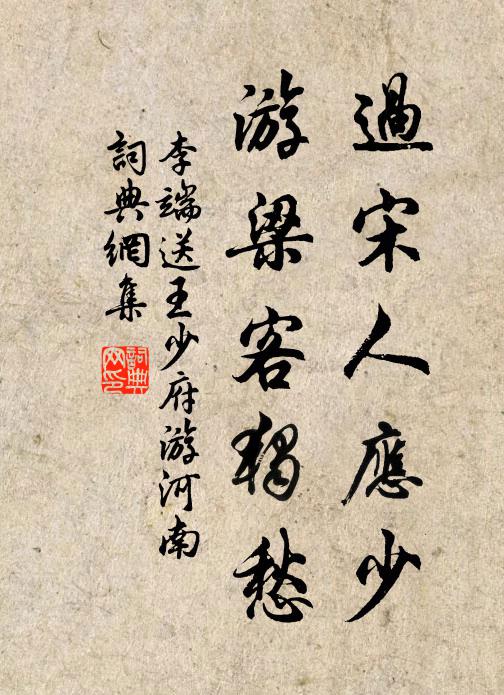 過宋人應少
游梁客獨愁
李端送王少府游河南
詞典網集
詞典網印